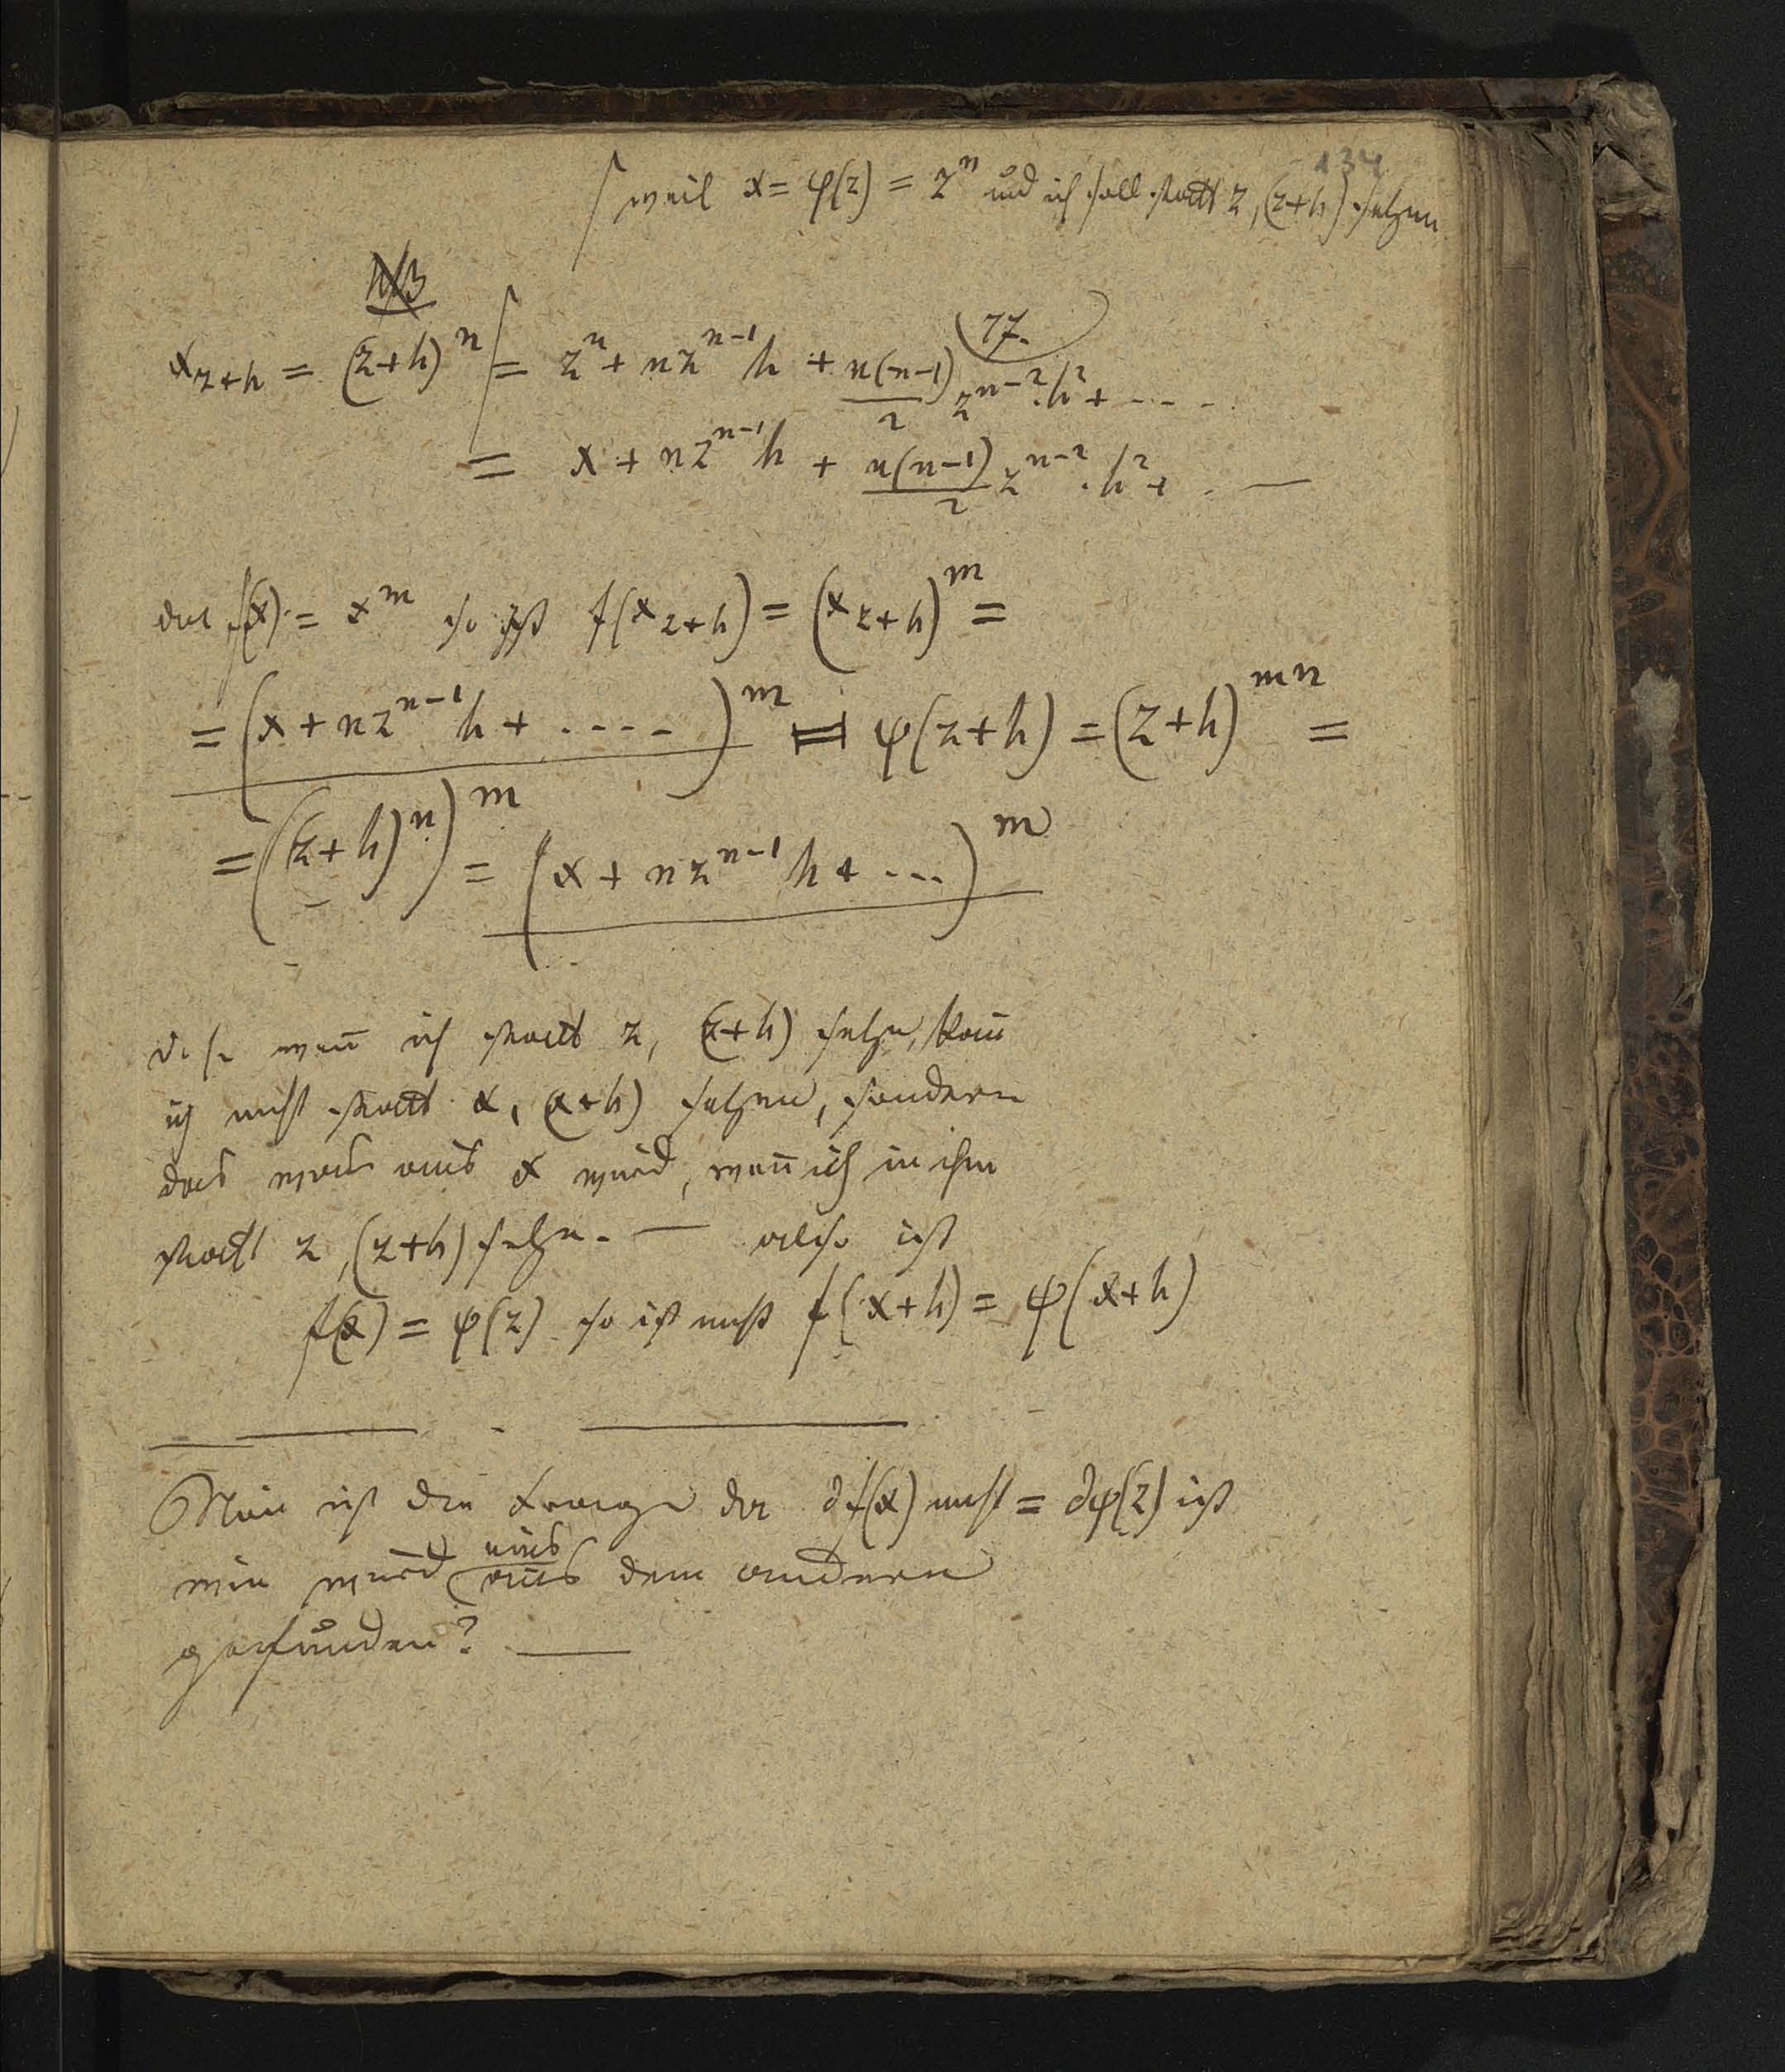 134
weil x = φ(z) = z^n und ich soll statt z, (z+h) setzen
NB
77.
x_{z+h} = (z+h)^n = z^n + nz^{n-1}h + n(n-1)/2 z^{n-2}.h^2 + - - - .
= x + nz^{n-1}h + n(n-1)/2 z^{n-2}.h^2 + . —
da f(x) = x^m so ist f(x_{z+h}) = (x_{z+h})^m =
= (x + nz^{n-1}h + ....)^m = ψ(z+h) = (z+h)^{mn} =
= ((z+h)^n)^m = (x + nz^{n-1}h + ...)^m
d.h. wen̄ ich statt z, (z+h) setze, kan̄
ich nicht statt x, (x+h) setzen, sondern
das was aus x wird, wen̄ ich in ihm
statt z, (z+h) setze. — also ist
f(x) = ψ(z) so ist nicht f(x+h) = ψ(x+h)
Nun ist die Frage da ∂f(x) nicht = ∂ψ(z) ist
wie wird eins aus dem andern
gefunden? —